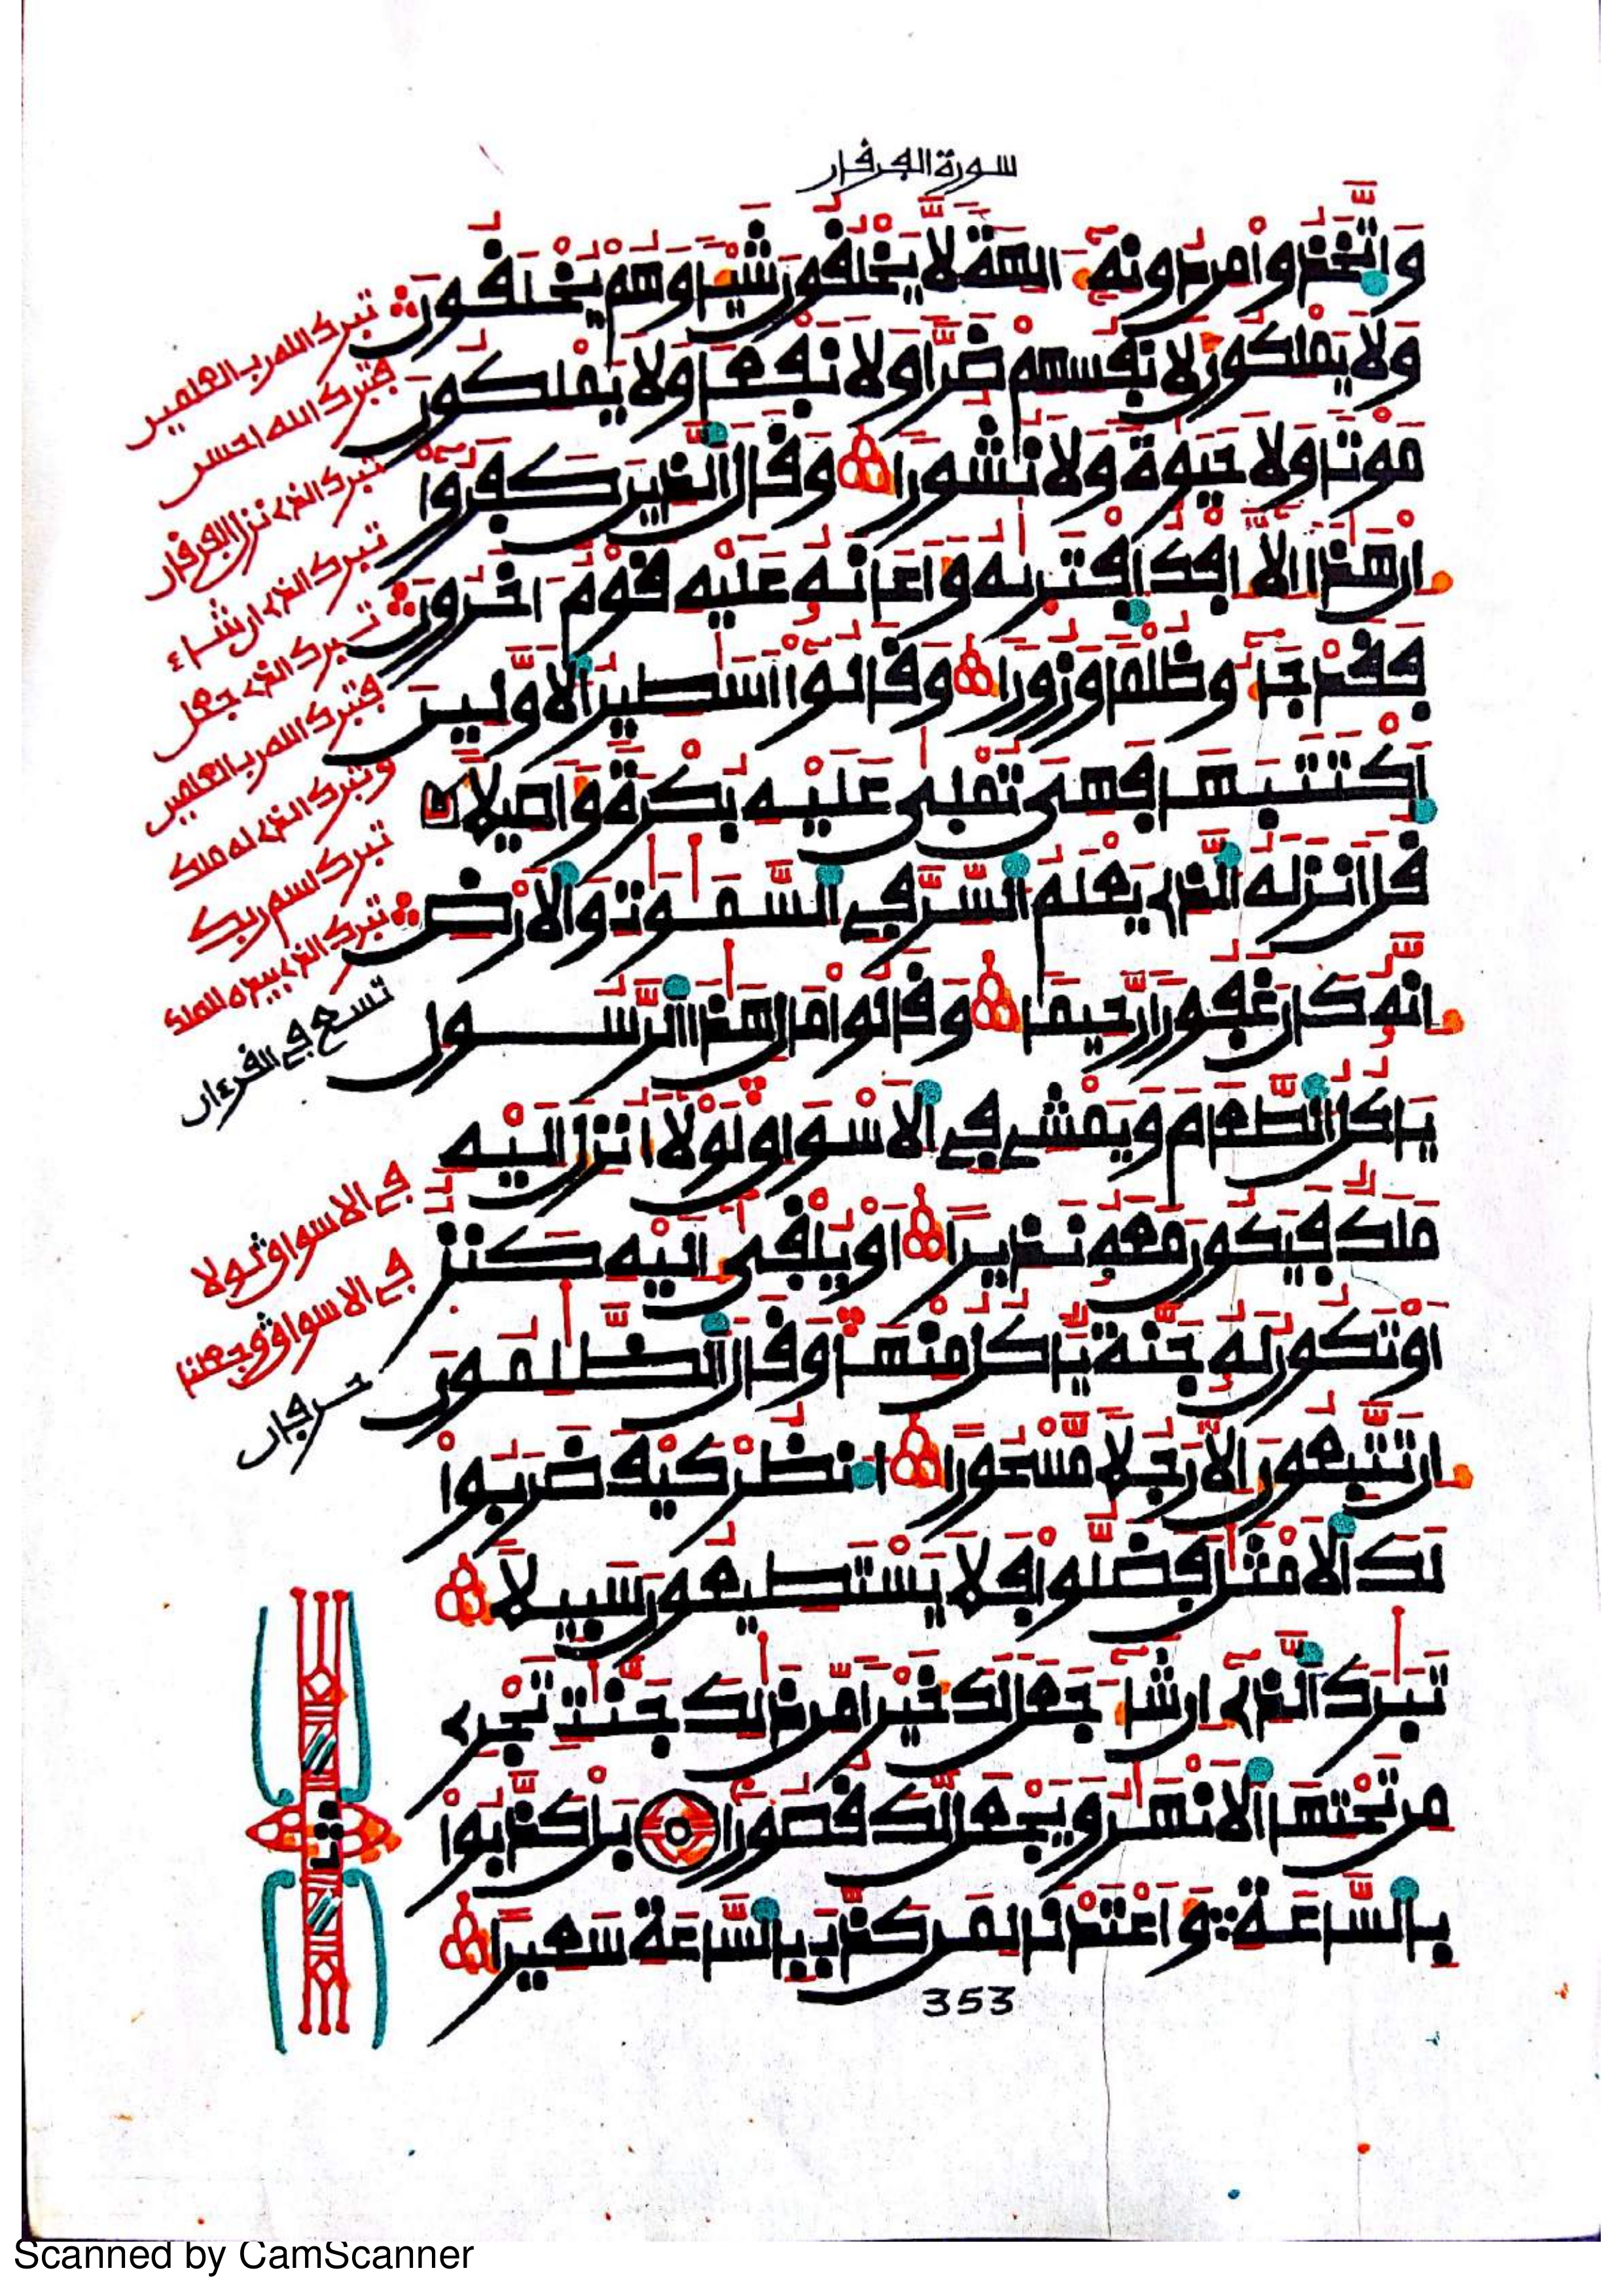 سورة الفرقان
وَاتَّخَذُوا مِن دُونِهِ ءَالِهَةً لَّا يَخْلُقُونَ شَيْـًٔا وَهُمْ يُخْلَقُونَ
وَلَا يَمْلِكُونَ لِأَنفُسِهِمْ ضَرًّا وَلَا نَفْعًا وَلَا يَمْلِكُونَ
مَوْتًا وَلَا حَيَوٰةً وَلَا نُشُورًا وَقَالَ الَّذِينَ كَفَرُوا
إِنْ هَٰذَا إِلَّا إِفْكٌ افْتَرَىٰهُ وَأَعَانَهُ عَلَيْهِ قَوْمٌ ءَاخَرُونَ
فَقَدْ جَاءُو ظُلْمًا وَزُورًا وَقَالُوا أَسَٰطِيرُ الْأَوَّلِينَ
اكْتَتَبَهَا فَهِيَ تُمْلَىٰ عَلَيْهِ بُكْرَةً وَأَصِيلًا
قُلْ أَنزَلَهُ الَّذِي يَعْلَمُ السِّرَّ فِي السَّمَٰوَٰتِ وَالْأَرْضِ
إِنَّهُ كَانَ غَفُورًا رَّحِيمًا وَقَالُوا مَالِ هَٰذَا الرَّسُولِ
يَأْكُلُ الطَّعَامَ وَيَمْشِي فِي الْأَسْوَاقِ لَوْلَا أُنزِلَ إِلَيْهِ
مَلَكٌ فَيَكُونَ مَعَهُ نَذِيرًا أَوْ يُلْقَىٰ إِلَيْهِ كَنزٌ
أَوْ تَكُونُ لَهُ جَنَّةٌ يَأْكُلُ مِنْهَا وَقَالَ الظَّٰلِمُونَ
إِن تَتَّبِعُونَ إِلَّا رَجُلًا مَّسْحُورًا انظُرْ كَيْفَ ضَرَبُوا
لَكَ الْأَمْثَالَ فَضَلُّوا فَلَا يَسْتَطِيعُونَ سَبِيلًا
تَبَٰرَكَ الَّذِي إِن شَاءَ جَعَلَ لَكَ خَيْرًا مِّن ذَٰلِكَ جَنَّٰتٍ تَجْرِي
مِن تَحْتِهَا الْأَنْهَٰرُ وَيَجْعَل لَّكَ قُصُورًا بَلْ كَذَّبُوا
بِالسَّاعَةِ وَأَعْتَدْنَا لِمَن كَذَّبَ بِالسَّاعَةِ سَعِيرًا
353
تبرك الله رب العلمين
فتبرك الله احسن
تبرك الذي نزل الفرقان
تبرك الذي ان شاء
تبرك الذي جعل
فتبرك الله رب العلمين
وتبرك الذي له ملك
تبرك اسم ربك
تبرك الذي بيده الملك
تسع في القرءان
في الاسواق لولا
في الاسواق وجعلنا
حرفان
ثمن
Scanned by CamScanner